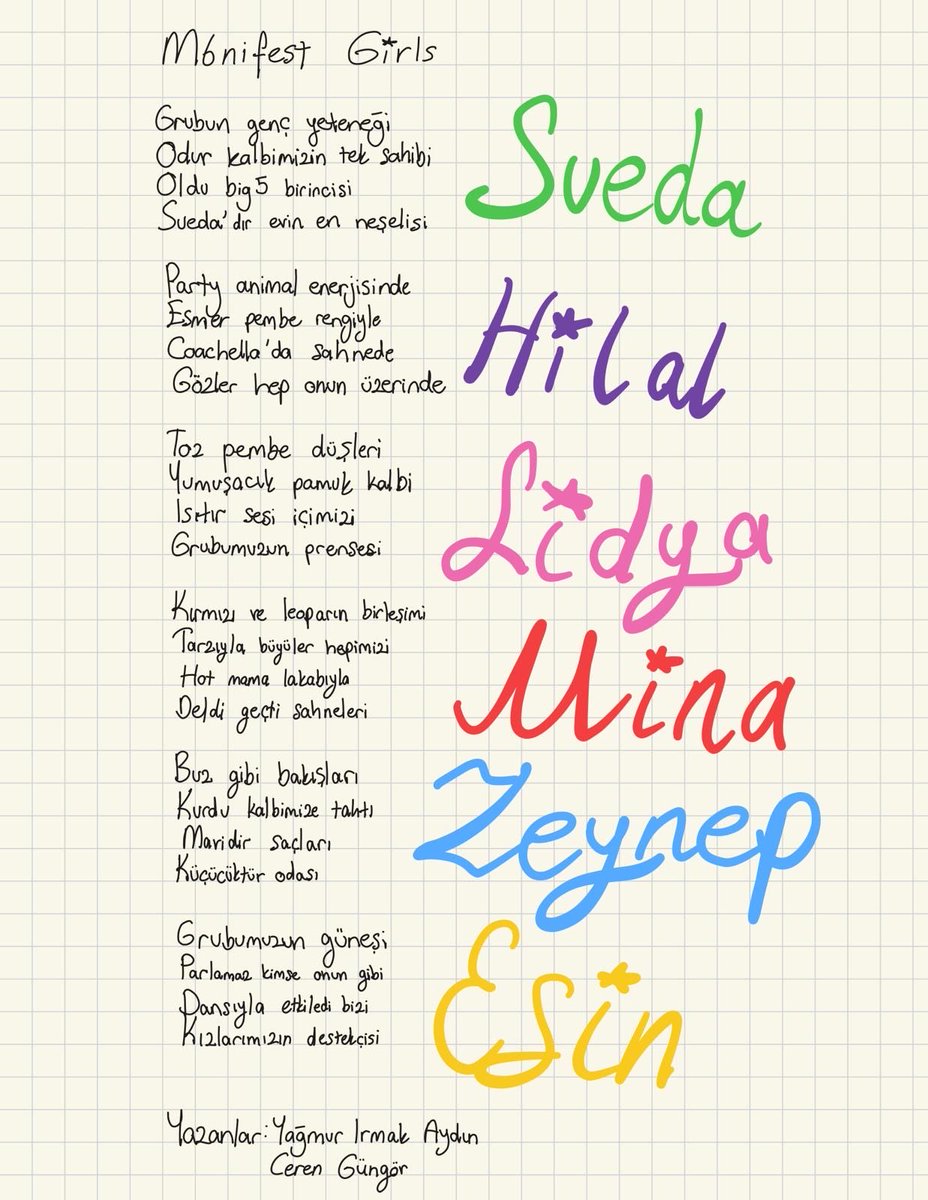 M6nifest Girls
Grubun genç yeteneği
Odur kalbimizin tek sahibi
Oldu big5 birincisi
Sueda'dır evin en neşelisi
Sueda
Party animal enerjisinde
Esmer pembe rengiyle
Coachella'da sahnede
Gözler hep onun üzerinde
Hilal
Toz pembe düşleri
Yumuşacık pamuk kalbi
Isıtır sesi içimizi
Grubumuzun prensesi
Lidya
Kırmızı ve leoparın birleşimi
Tarzıyla büyüler hepimizi
Hot mama lakabıyla
Deldi geçti sahneleri
Mina
Buz gibi bakışları
Kurdu kalbimize tahtı
Mavidir saçları
Küçücüktür odası
Zeynep
Grubumuzun güneşi
Parlamaz kimse onun gibi
Dansıyla etkiledi bizi
Kızlarımızın destekçisi
Esin
Yazanlar: Yağmur Irmak Aydın
Ceren Güngör